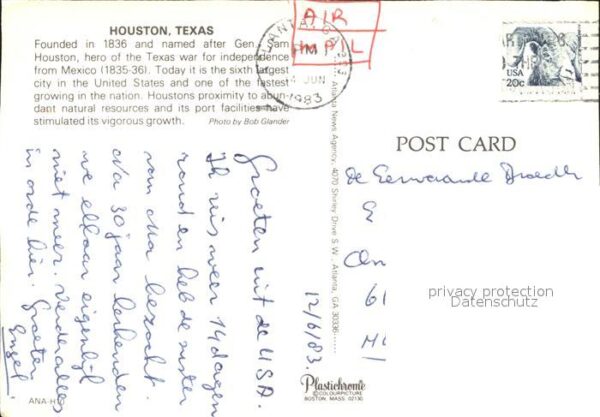 HOUSTON, TEXAS
Founded in 1836 and named after Gen. Sam
Houston, hero of the Texas war for independence
from Mexico (1835-36). Today it is the sixth largest
city in the United States and one of the fastest
growing in the nation. Houstons proximity to abun-
dant natural resources and its port facilities have
stimulated its vigorous growth.
Photo by Bob Glander
AIR
MAIL
PM
JUN
1983
USA
20c
POST CARD
Groeten uit de USA.
Ik reis weer 14 dagen
rond en heb de zuster
van Ma bezocht.
Na 30 jaar herkenden
we elkaar eigenlijk
niet meer. Verder alles
in orde hier. Groeten
Engel.
12/6/83.
News Agency, 4070 Shirley Drive S.W., Atlanta, GA 30336
de Eerwaarde Broeder
61
privacy protection
Datenschutz
ANA-H
Plastichrome
COLOURPICTURE
BOSTON, MASS. 02130